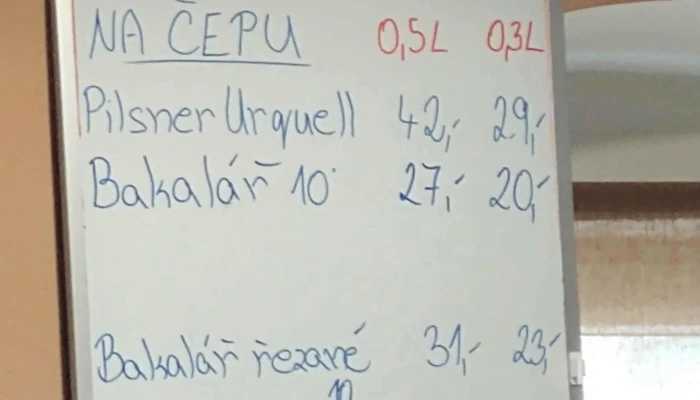 NA ČEPU 0,5L 0,3L
Pilsner Urquell 42,- 29,-
Bakalář 10° 27,- 20,-
Bakalář řezané 31,- 23,-
10